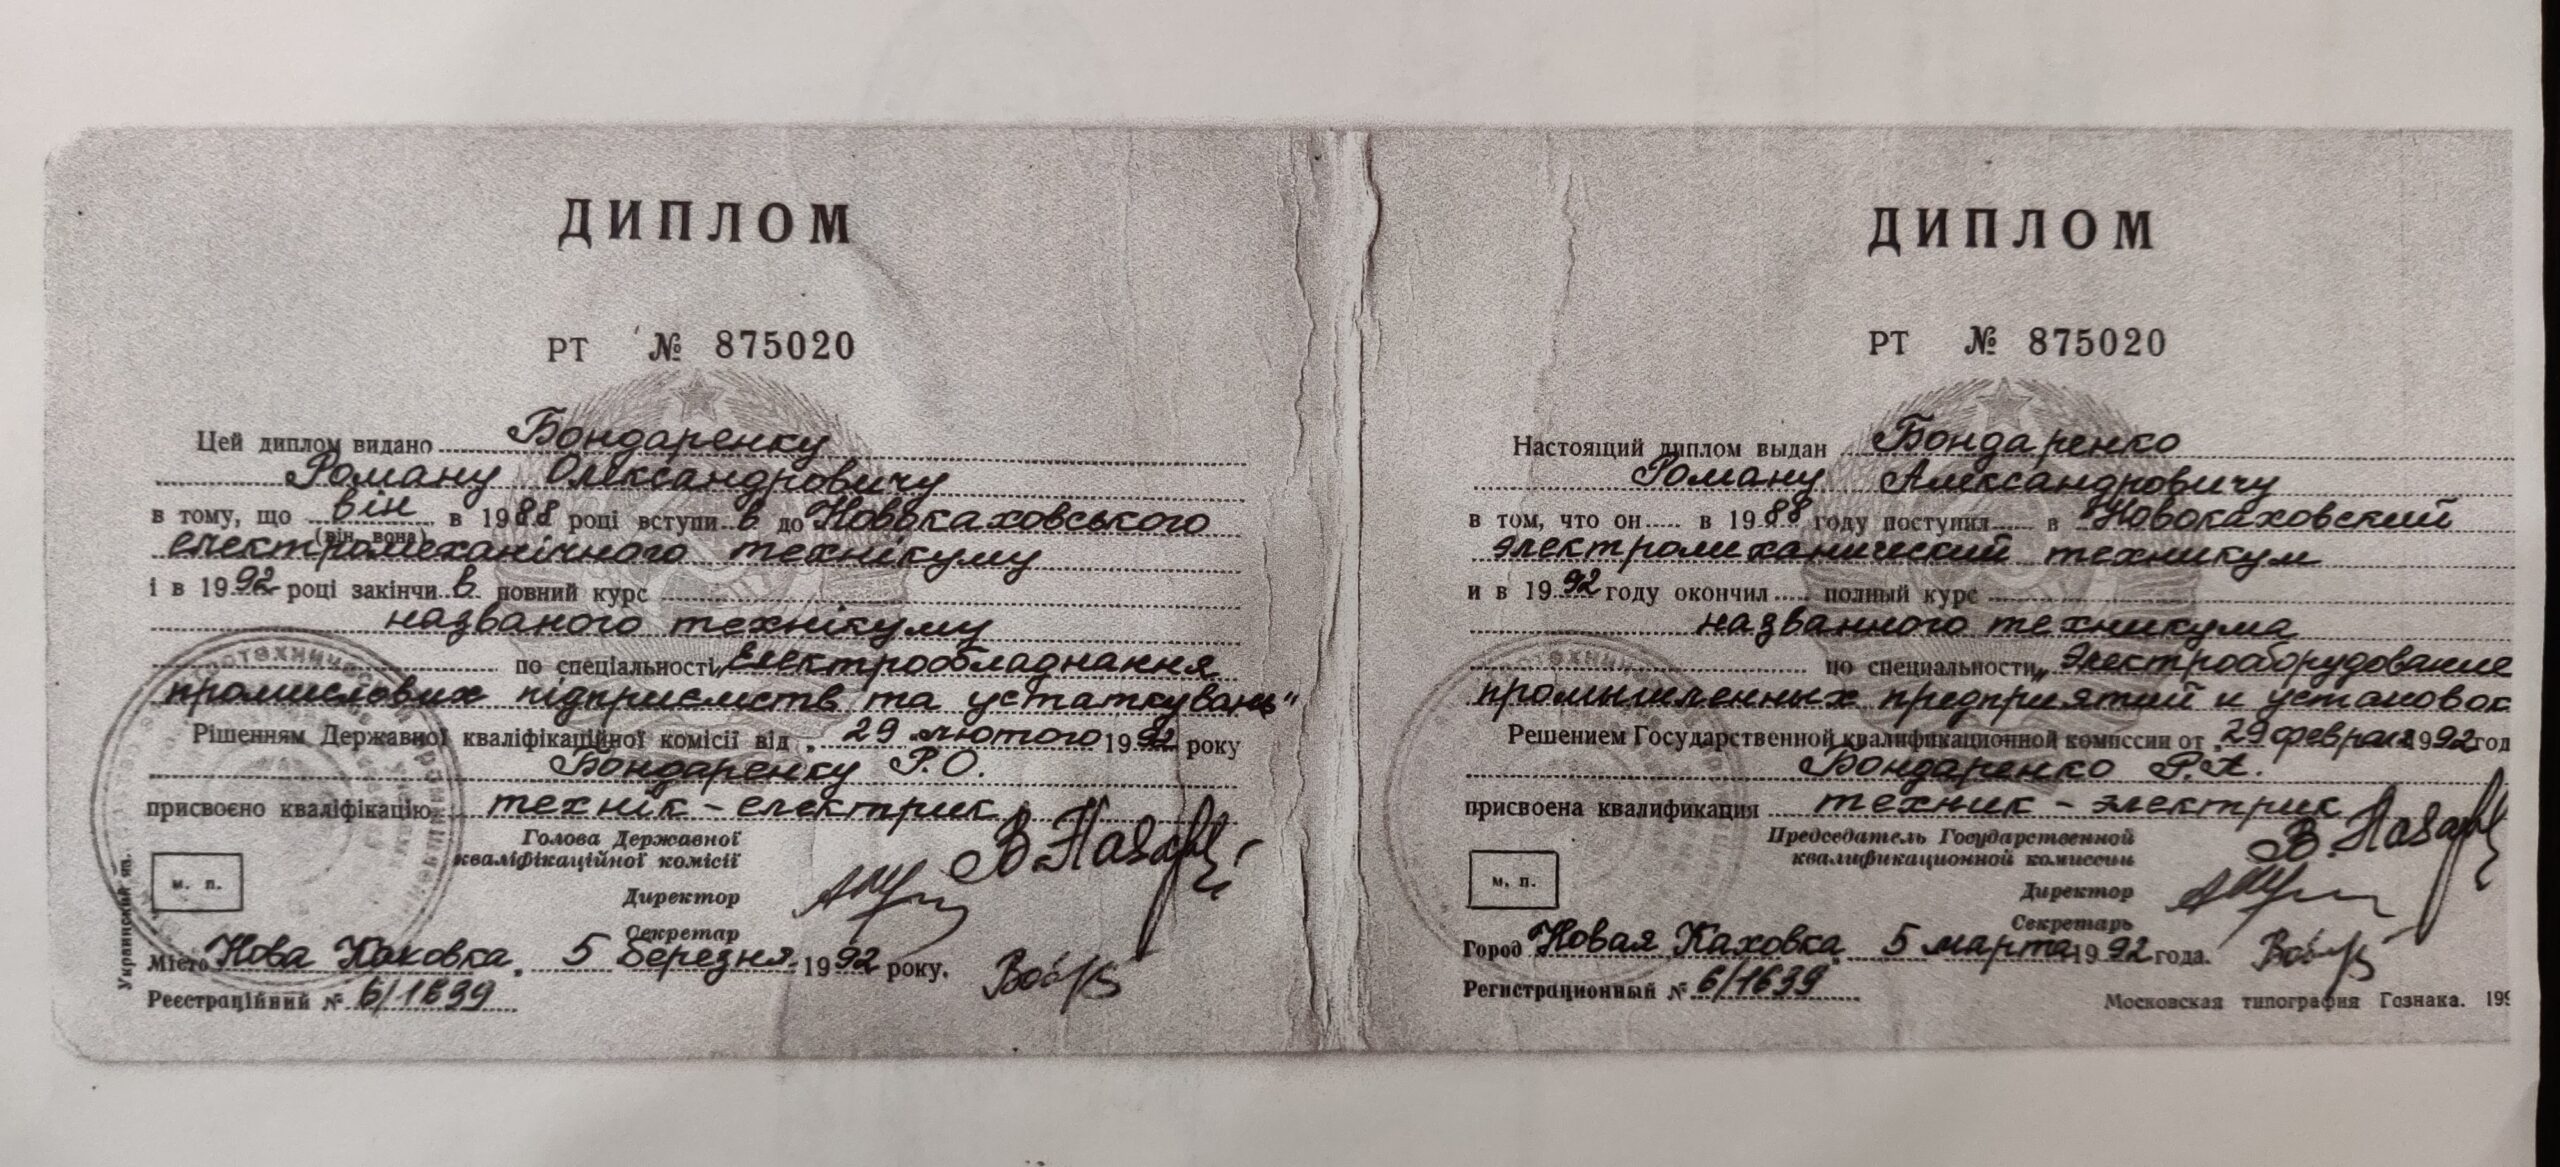 ДИПЛОМ
РТ № 875020
Цей диплом видано Бондаренку
Роману Олександровичу
в тому, що він в 1988 році вступив до Новокаховського
(він, вона)
електромеханічного технікуму
і в 1992 році закінчив повний курс
названого технікуму
по спеціальності „Електрообладнання
промислових підприємств та устаткувань"
Рішенням Державної кваліфікаційної комісії від „29 лютого 1992 року
Бондаренку Р.О.
присвоєно кваліфікацію технік-електрик
Голова Державної
кваліфікаційної комісії
Директор
Секретар
м. п.
Місто Нова Каховка, 5 березня 1992 року.
Реєстраційний № 6/1639
Украинский яз.
ДИПЛОМ
РТ № 875020
Настоящий диплом выдан Бондаренко
Роману Александровичу
в том, что он в 1988 году поступил в Новокаховский
электромеханический техникум
и в 1992 году окончил полный курс
названного техникума
по специальности „Электрооборудование
промышленных предприятий и установок
Решением Государственной квалификационной комиссии от „29 февраля 1992 год
Бондаренко Р.А.
присвоена квалификация техник-электрик
Председатель Государственной
квалификационной комиссии
Директор
Секретарь
м. п.
Город Новая Каховка, 5 марта 1992 года.
Регистрационный № 6/1639
Московская типография Гознака. 199